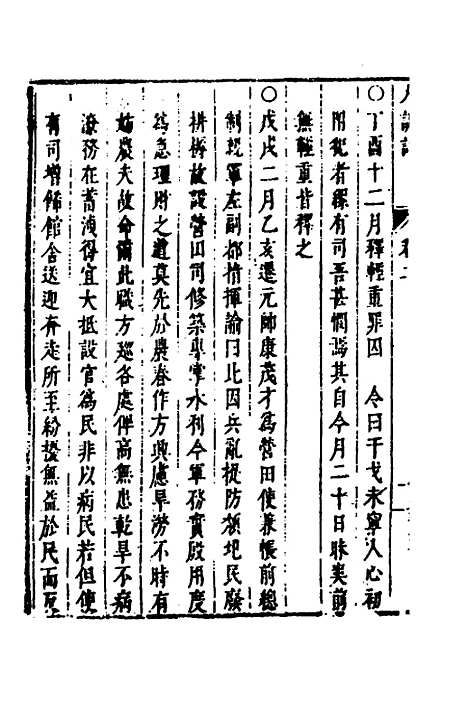 ○丁酉十二月釋輕重罪囚 令曰干戈未寧人心初
附犯者縲有司吾甚憫焉其自今月二十日昧爽前
無輕重皆釋之
○戊戌二月乙亥遷元帥康茂才為營田使兼帳前總
制親軍左副都指揮諭曰比因兵亂堤防頹圮民廢
耕耨故設營田司修築專掌水利今軍務實殷用度
為急理財之道莫先於農春作方興慮旱澇不時有
妨農夫故命爾此職方巡各處俾高無患乾旱不病
潦務在蓄洩得宜大抵設官為民非以病民若但使
有司增餙館舍送迎奔走所至紛擾無益於民而反